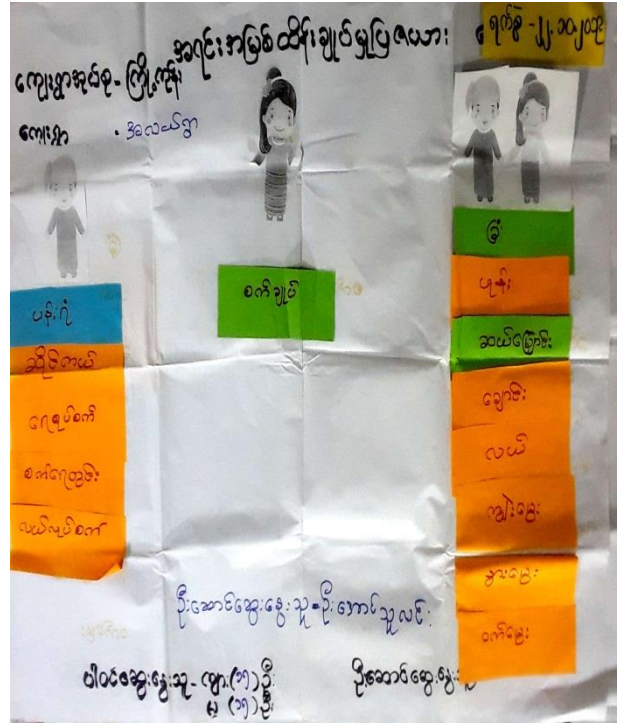 အရင်းအမြစ်ထိန်းချုပ်မှုပြဇယား
ရက်စွဲ - ၂၂.၁၀.၂၀၁၉
ကျေးရွာအုပ်စု - ကြို့ကုန်း
ကျေးရွာ - အလယ်ရွာ
ပန်းရံ
ဆိုင်ကယ်
ရေစုပ်စက်
စက်ရေတွင်း
လယ်လုပ်စက်
စက်ချုပ်
ခြံ
ပုန်း
ဆယ်မြောင်း
ချောင်း
လယ်
ကျွဲမွေး
နွားမွေး
ဝက်မွေး
ဦးဆောင်ဆွေးနွေးသူ - ဦးအောင်သူလင်း
ပါဝင်ဆွေးနွေးသူ - ကျား (၁၅) ဦး
မ (၁၅) ဦး
ဦးဆောင်ဆွေးနွေးသူ